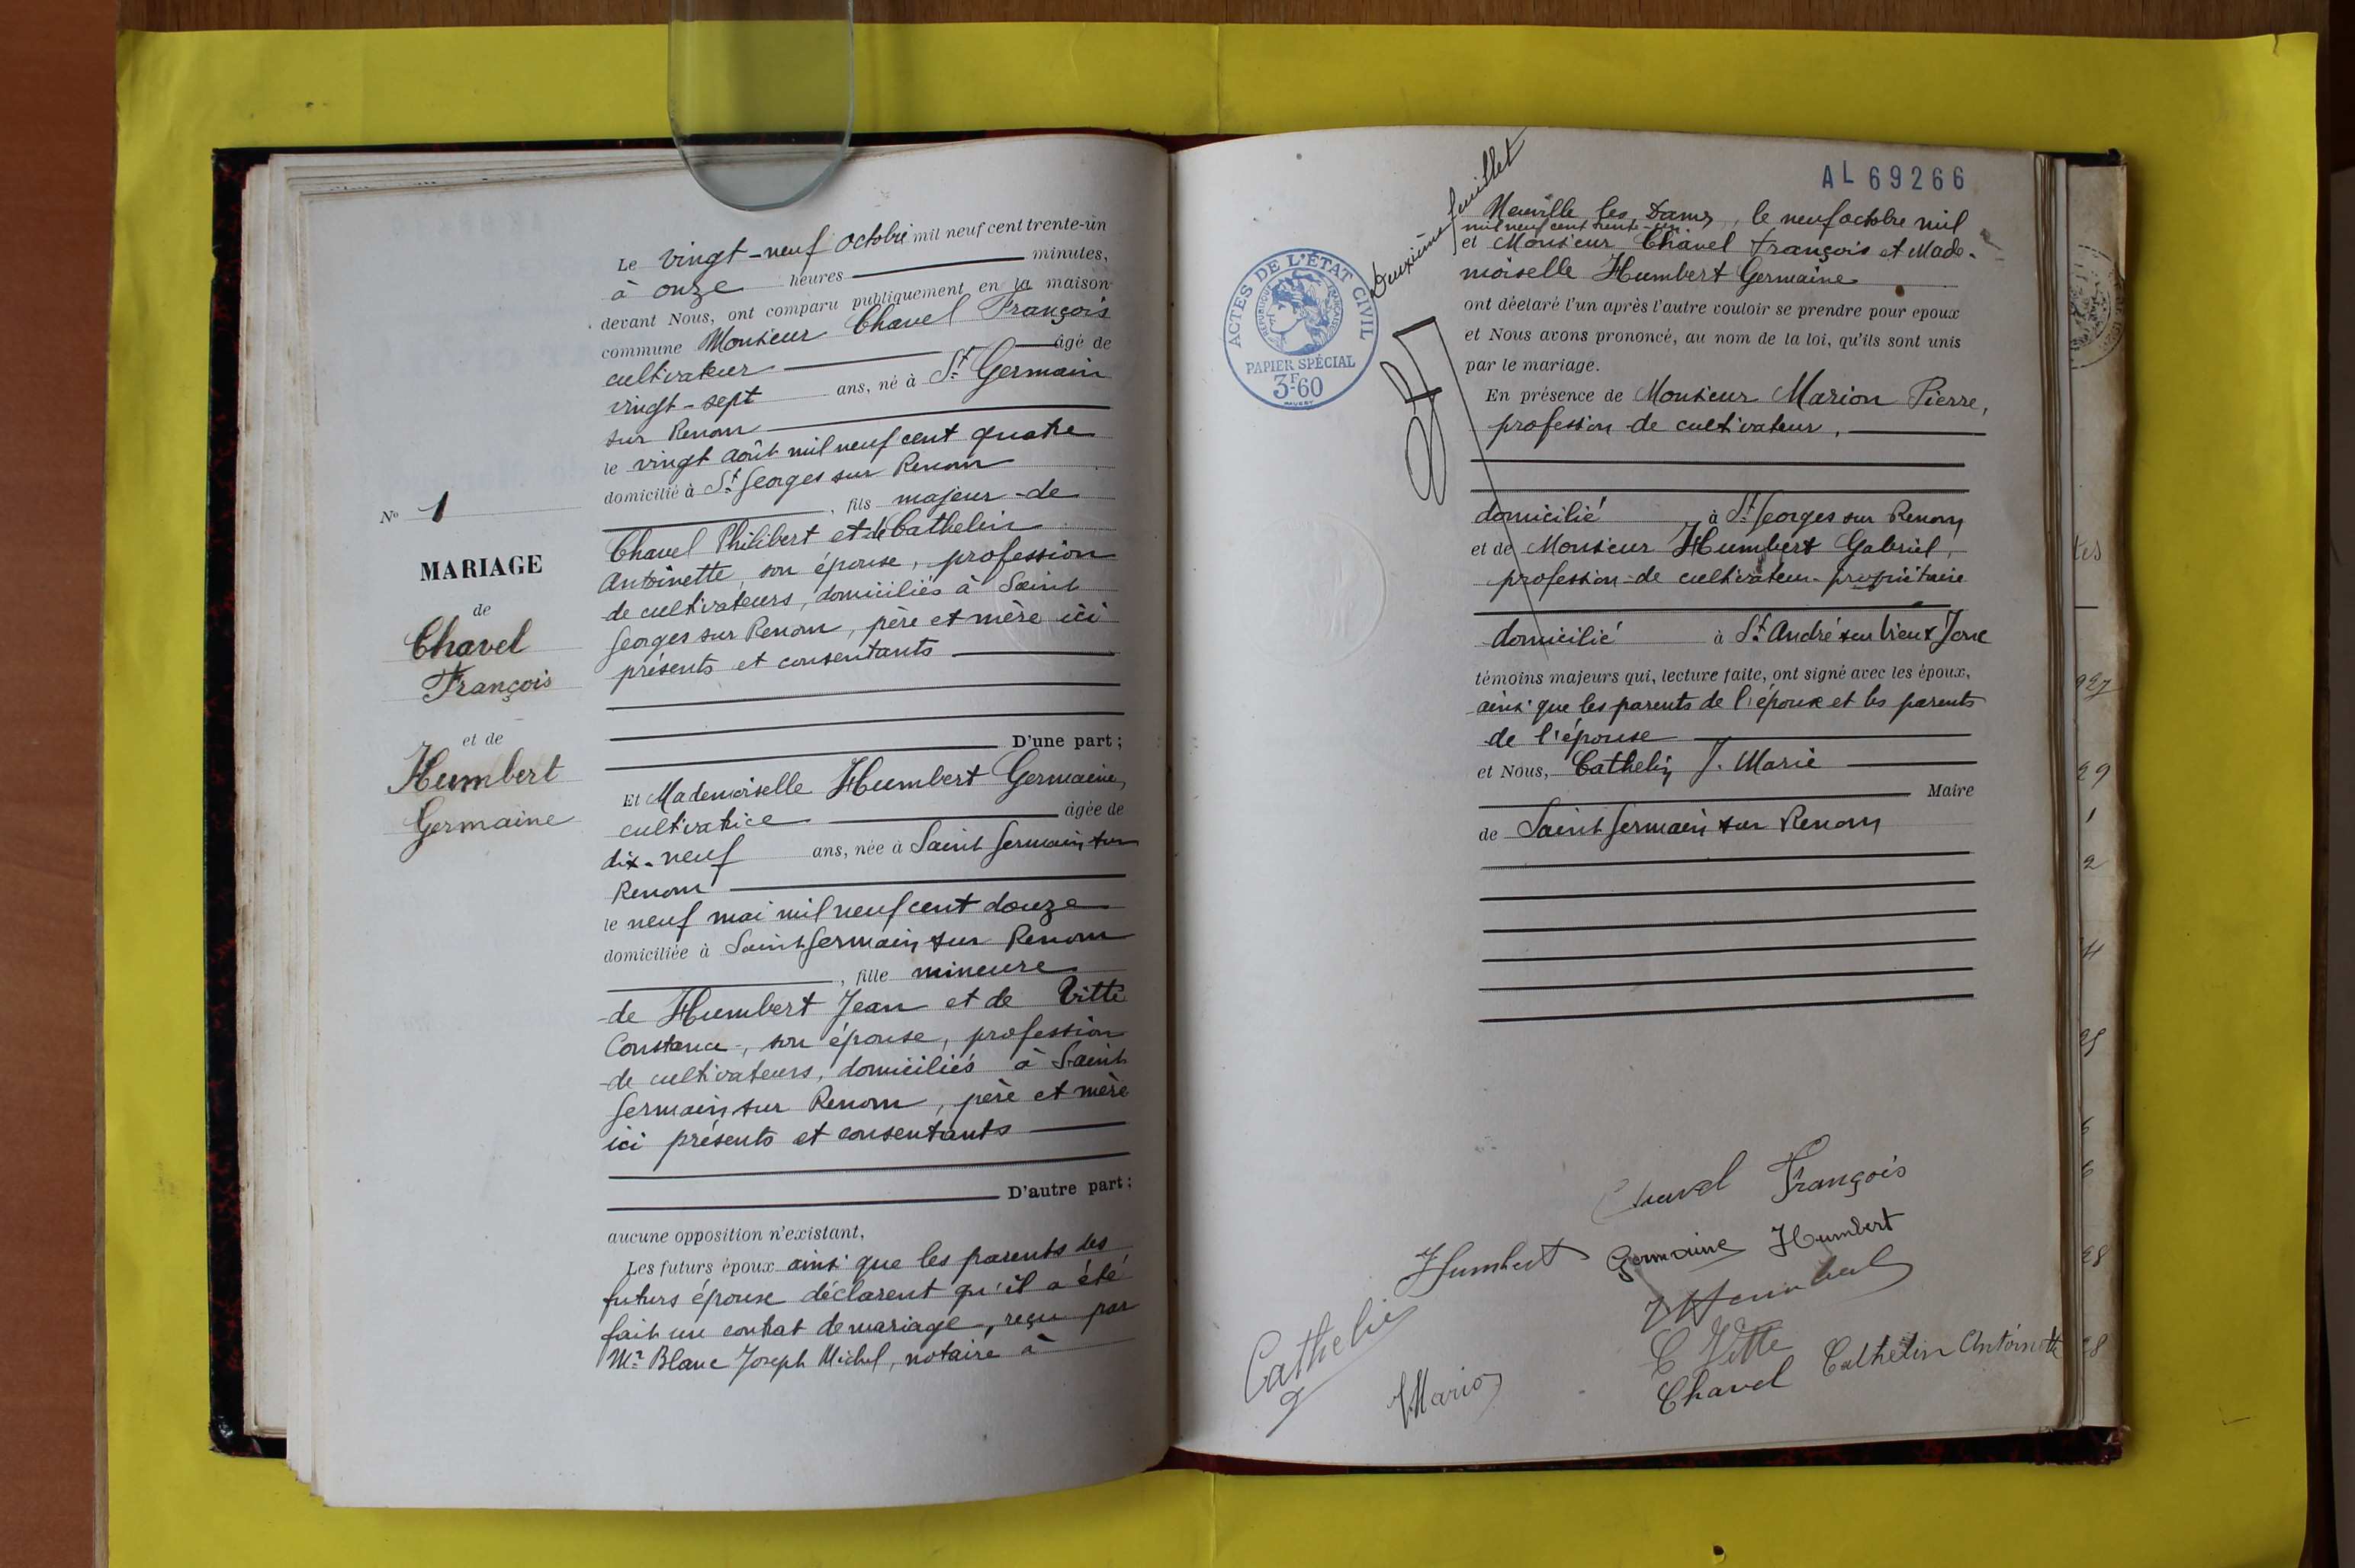 Le vingt-neuf octobre mil neuf cent trente-un
à onze heures minutes,
devant Nous, ont comparu publiquement en la maison
commune Monsieur Chavel François
cultivateur âgé de
vingt-sept ans, né à St Germain
sur Renom
le vingt août mil neuf cent quatre
domicilié à St Georges sur Renom
, fils majeur de
Chavel Philibert et de Cathelin
Antoinette, son épouse, profession
de cultivateurs, domiciliés à Saint
Georges sur Renom, père et mère ici
présents et consentants
D'une part ;
No 1
MARIAGE
de
Chavel
François
et de
Humbert
Germaine
Et Mademoiselle Humbert Germaine,
cultivatrice âgée de
dix-neuf ans, née à Saint Germain sur
Renom
le neuf mai mil neuf cent douze
domiciliée à Saint Germain sur Renom
, fille mineure
de Humbert Jean et de Vitte
Constance, son épouse, profession
de cultivateurs, domiciliés à Saint
Germain sur Renom, père et mère
ici présents et consentants
D'autre part ;
aucune opposition n'existant,
Les futurs époux ainsi que les parents des
futurs épouse déclarent qu'il a été
fait un contrat de mariage, reçu par
Mr Blanc Joseph Michel, notaire à
AL 69266
Deuxième feuillet
ACTES DE L'ÉTAT CIVIL
RÉPUBLIQUE FRANÇAISE
PAPIER SPÉCIAL
3F.60
Neuville les Dames, le neuf octobre mil
mil neuf cent trente-un
et Monsieur Chavel François et Made-
moiselle Humbert Germaine
ont déclaré l'un après l'autre vouloir se prendre pour époux
et Nous avons prononcé, au nom de la loi, qu'ils sont unis
par le mariage.
En présence de Monsieur Marion Pierre,
profession de cultivateur,
domicilié à St Georges sur Renom
et de Monsieur Humbert Gabriel,
profession de cultivateur-propriétaire
domicilié à St André sur Vieux Jonc
témoins majeurs qui, lecture faite, ont signé avec les époux,
ainsi que les parents de l'époux et les parents
de l'épouse
et Nous, Cathelin J. Marie
Maire
de Saint Germain sur Renom
Chavel François
Humbert Germaine Humbert
J Humbert
C Vitte
Cathelin
Marion
Chavel Cathelin Antoinette